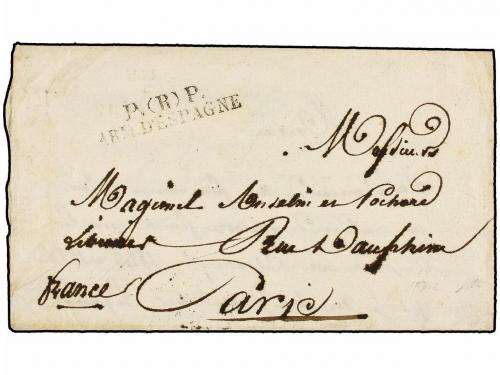 P.(R)P.
ARM.D'ESPAGNE
Messieurs
Magimel Anselin et Pochard
Libraires Rue Dauphine
france Paris